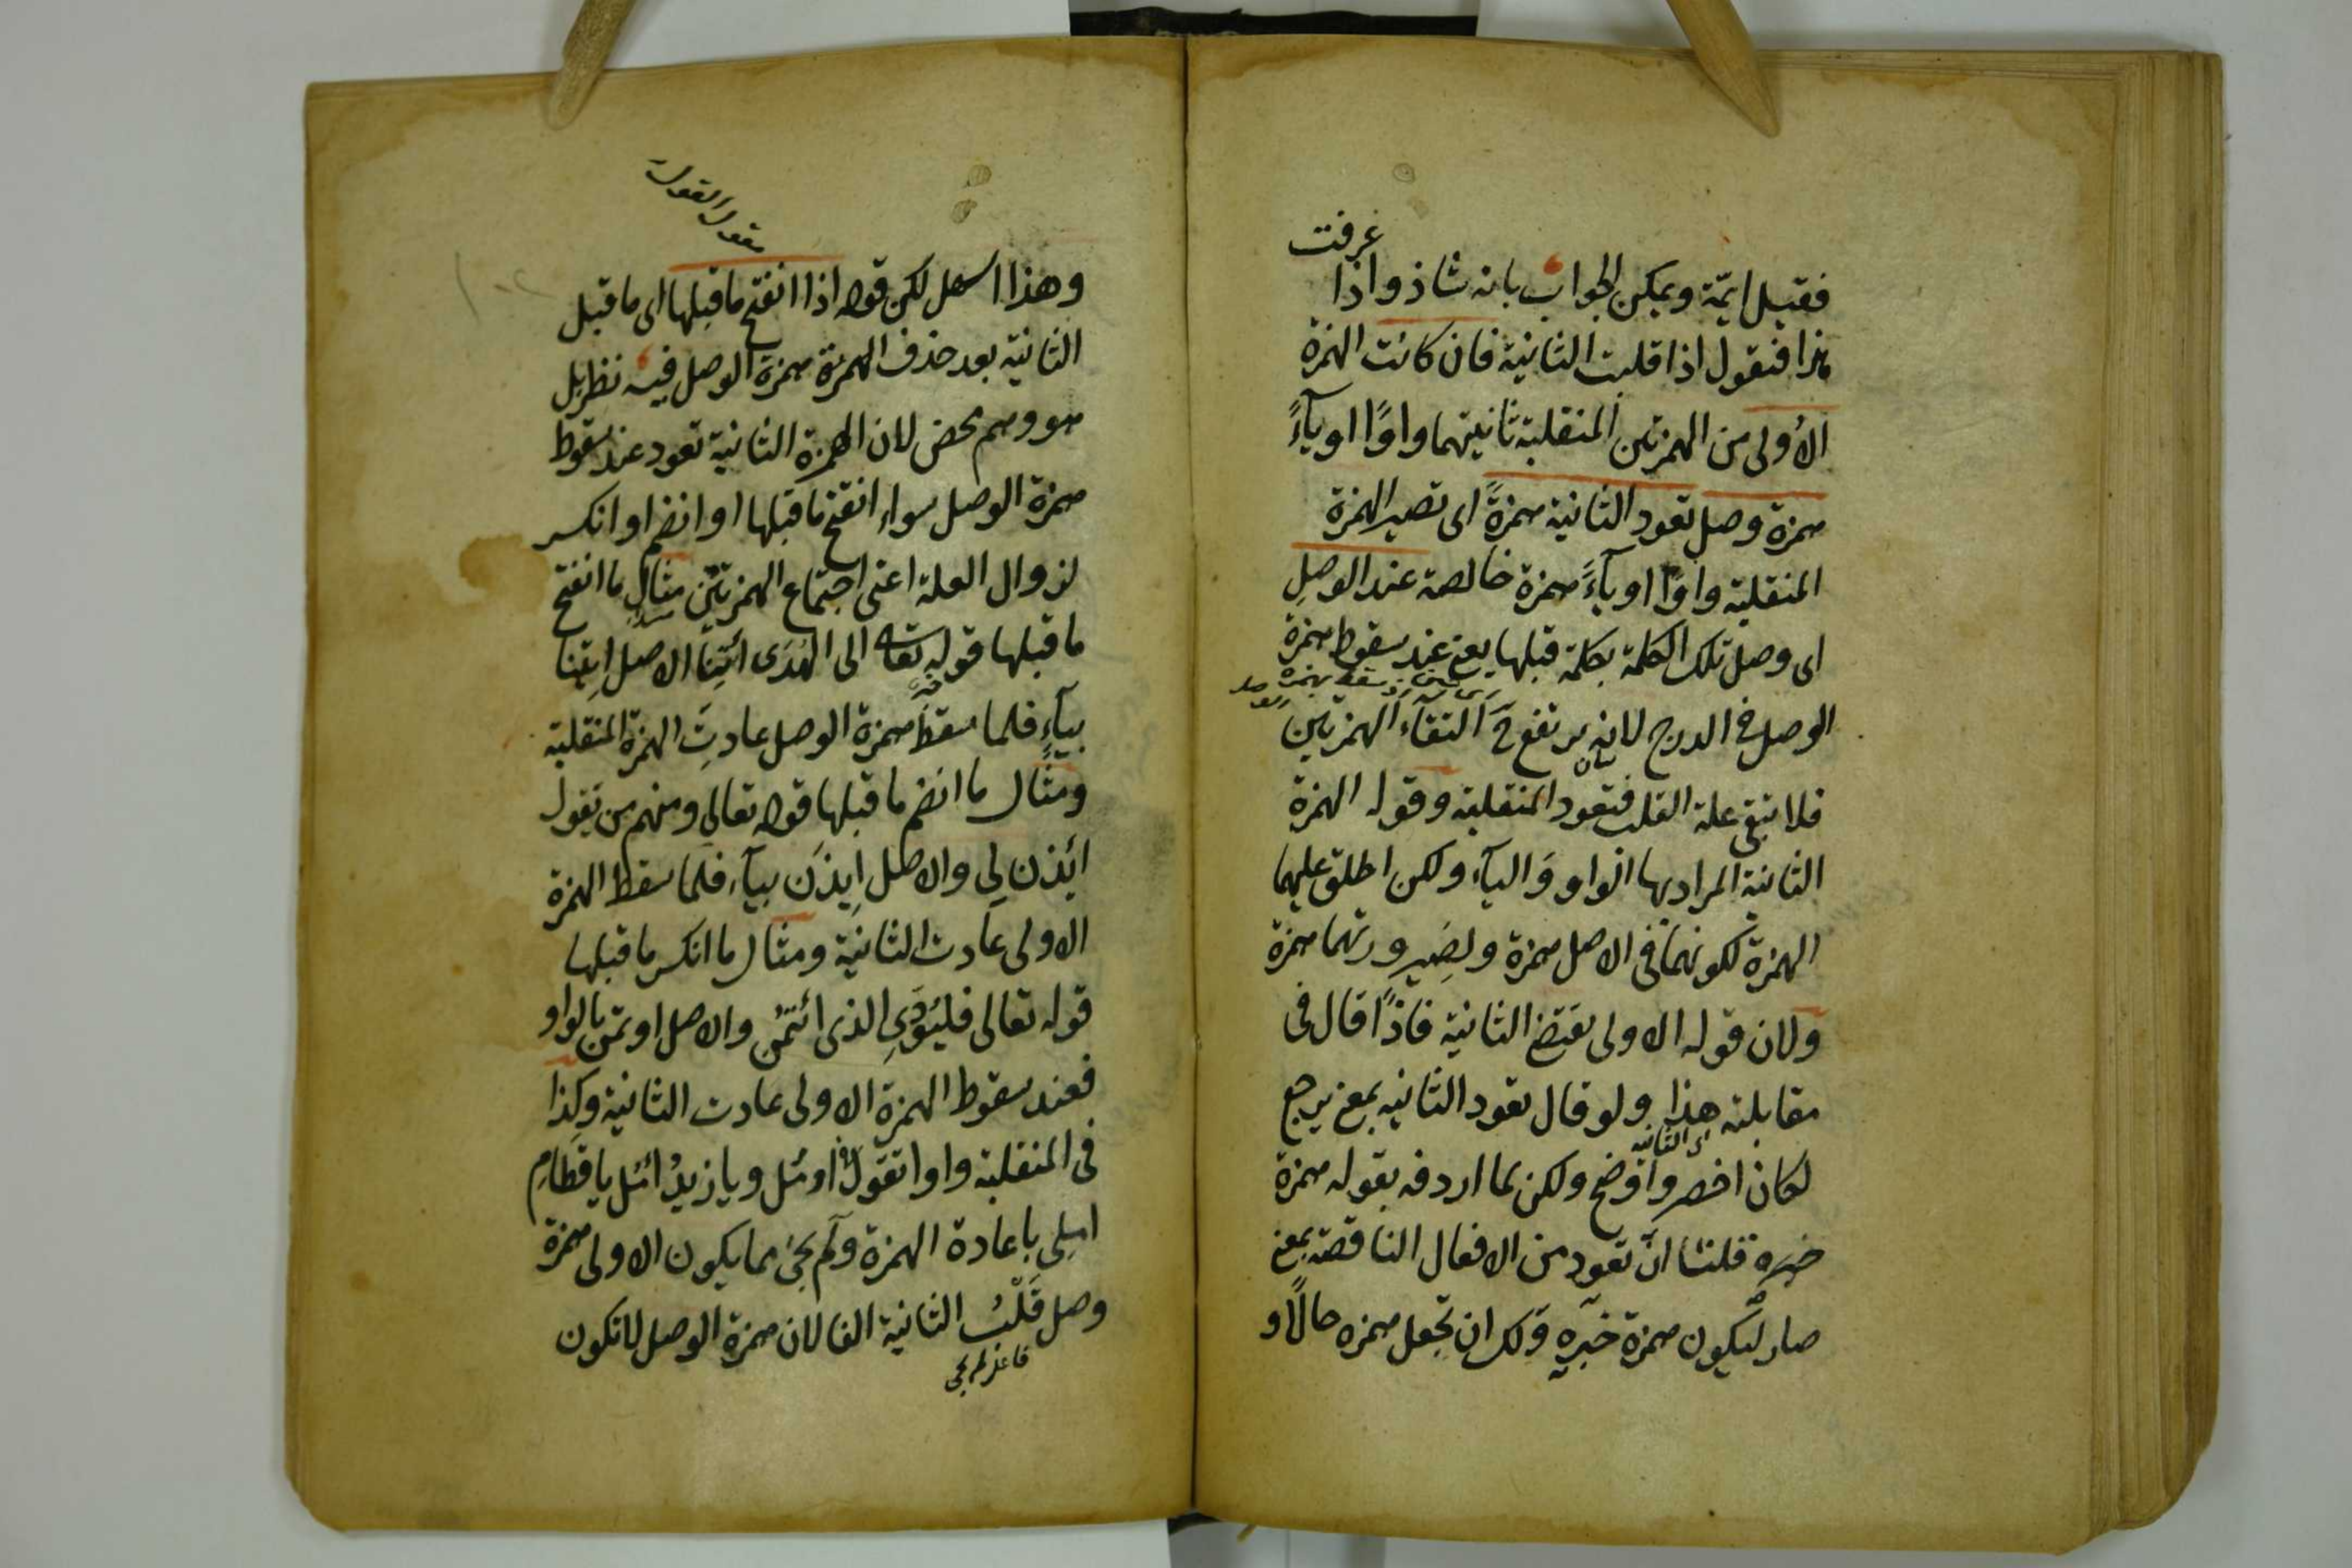 عرفت
فقيل ايمّة ويمكن الجواب بانه شاذ واذا
هذا فنقول اذا قلبت الثانية فان كانت الهمزة
الأولى من الهمزتين المنقلبة ثانيتهما واوًا او يآءً
همزة وصل تعود الثانية همزةً اى تصير الهمزة
المنقلبة واوًا او يآءً همزة خالصة عند الوصلِ
اى وصل تلك الكلمة بكلمة قبلها يعنى عند سقوط همزة
الوصل فى الدرج لانه يرتفع ح التقآء الهمزتين
فلا تبقى علة القلب فتعود المنقلبة وقوله الهمزة
الثانية المراد بها الواو وَاليآء ولكن اطلق عليهما
الهمزة لكونهما فى الاصل همزة ولصَيرورتهما همزة
ولان قوله الاولى يقتضى الثانية فاذًا قال فى
مقابلته هذا ولو قال تعود الثانيه بمعنى يرجع
اى الثانية
لكان اخصر واوضح ولكن لما اردفه بقوله همزة
خبره قلنا انّ تعود من الافعال الناقصة بمعنى
صار ليكون همزة خبره وَلك ان تجعل همزه حالًا و
مقول القول
وهذا اسهل لكن قوله اذا انفتح ماقبلها اى ما قبل
الثانية بعد حذف الهمزة همزة الوصل فيه نظر بل
هو وهم محض لان الهمزة الثانية تعود عند سقوط
همزة الوصل سواء انفتح ماقبلها او انضم او انكسر
لزوال العلة اعنى اجتماع الهمزتين مثال ما انفتح
ما قبلها قوله تعالى الى الهُدَى ائتِنَا الاصل اِيتِنا
بيآءٍ فلما سقط همزة الوصل عادتِ الهمزة المنقلبة
ومثال ما انضم ما قبلها قوله تعالى ومنهم من يَقول
ائذن لِي والاصل اِيذَن بيآء فلما سقط الهمزة
الاولى عادت الثانية ومثال ما انكسر ما قبلها
قوله تعالى فليُؤدّىِ الذى ائتُمن والاصل اوتمن بالواو
فعند سقوط الهمزة الاولى عادت الثانية وكذا
فى المنقلبة واوا تقول اومُل ويا زيدُ ائمل يا قَطامِ
املِى باعادة الهمزة ولَم يجئ مما يكون الاولى همزة
وصل قَلْبُ الثانية الفا لان همزة الوصل لا تكون
فاعل لم يجئ